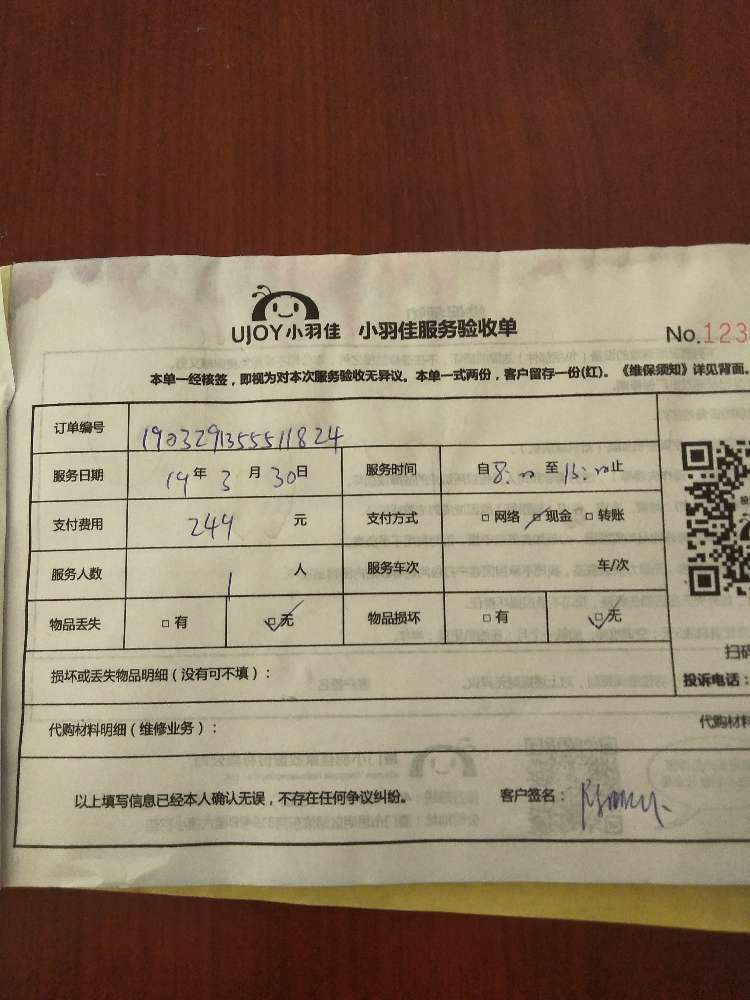 UJOY小羽佳 小羽佳服务验收单
No.123
本单一经核签，即视为对本次服务验收无异议。本单一式两份，客户留存一份(红)。《维保须知》详见背面。
订单编号 1903291355511824
服务日期 19年3月30日 服务时间 自8:00至15:00止
支付费用 244 元 支付方式 □网络 □现金 □转账
服务人数 1 人 服务车次 车/次
物品丢失 □有 □无 物品损坏 □有 □无
扫码
损坏或丢失物品明细（没有可不填）：
投诉电话：
代购材料明细（维修业务）：
代购材料
以上填写信息已经本人确认无误，不存在任何争议纠纷。 客户签名：